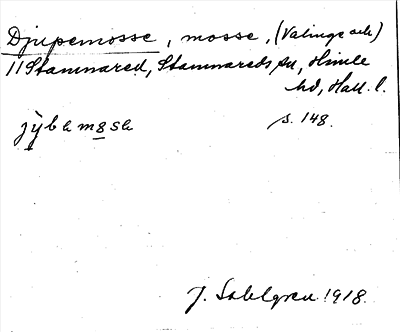 Djupemosse, mosse, (Valinge och)
11 Stamnared, Stamnareds sn, Himle
hd, Hall. l.
s. 148.
J. Sahlgren 1918.